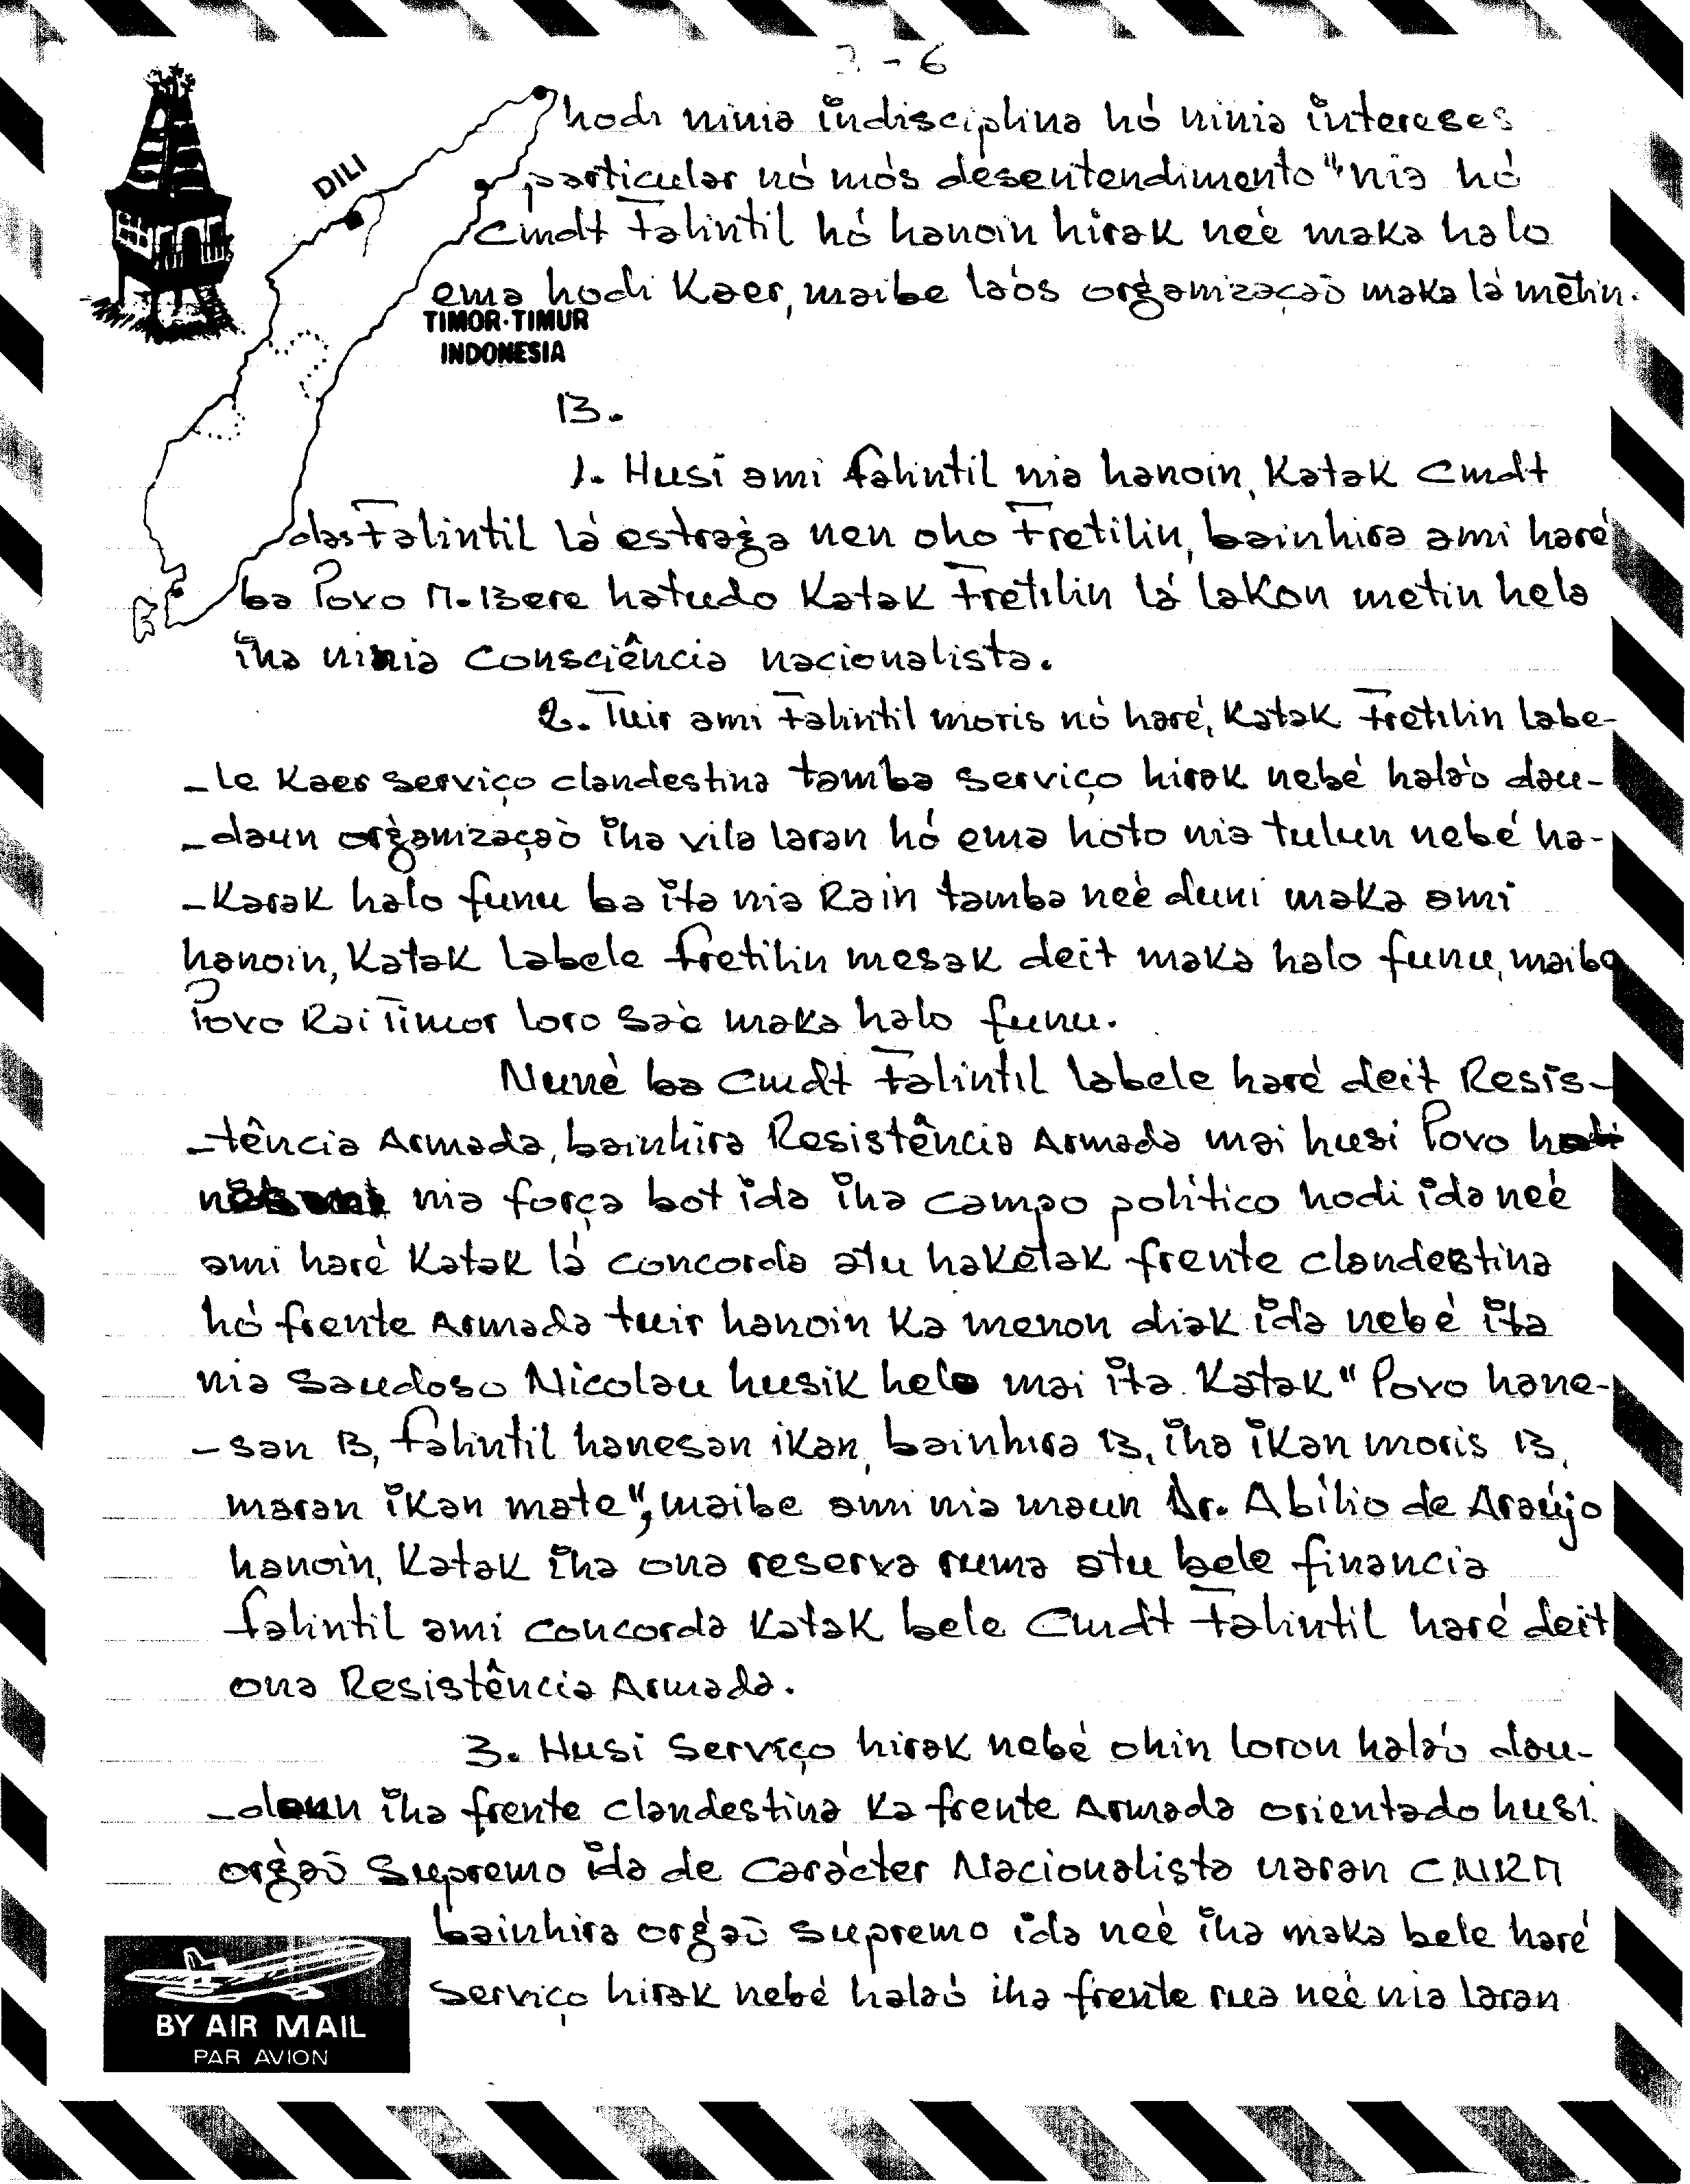 - 6
hodi ninia indisciplina hó ninia intereses
DILI
particular nó mós desentendimento" nia hó
Cmdt Falintil hó hanoin hirak neè maka halo
ema hodi Kaer, maibe laòs orgànizaçaò maka lá metin.
TIMOR·TIMUR
INDONESIA
B.
1. Husi ami falintil nia hanoin, Katak Cmdt
das Falintil lá estraga nen oho Fretilin, bainhira ami haré
ba Povo M.Bere hatudo Katak Fretilin lá lakon metin hela
iha ninia Consciência nacionalista.
2. Tuir ami Falintil moris nó haré, Katak Fretilin labe-
-le Kaer serviço clandestina tamba serviço hirak nebé halaò dau-
-daun orgànizaçaò iha vila laran hó ema hoto nia tulun nebé ha-
-Karak halo funu ba ita nia Rain tamba neè duni maka ami
hanoin, Katak labele fretilin mesak deit maka halo funu, maibe
Povo Rai Timor loro saè maka halo funu.
Nunè ba Cmdt Falintil labele haré deit Resis-
-tência Armada, bainhira Resistência Armada mai husi Povo hodi
nia força bot ida iha campo político hodi ida neè
ami haré Katak lá concorda atu haketak frente clandestina
hó frente Armada tuir hanoin Ka menon diak ida nebé ita
nia saudoso Nicolau husik hela mai ita Katak "Povo hane-
-san B, falintil hanesan ikan, bainhira B, iha ikan moris B,
maran ikan mate", maibe ami nia maun Dr. Abílio de Araújo
hanoin, Katak iha ona reserva ruma atu bele financia
falintil ami concorda Katak bele Cmdt Falintil haré deit
ona Resistência Armada.
3. Husi Serviço hirak nebé ohin loron halaò dau-
-daun iha frente clandestina Ka frente Armada orientado husi
orgàõ Supremo ida de Carácter Nacionalista naran C.N.R.M
bainhira orgàõ supremo ida neè iha maka bele haré
serviço hirak nebé halaò iha frente rua neè nia laran
BY AIR MAIL
PAR AVION